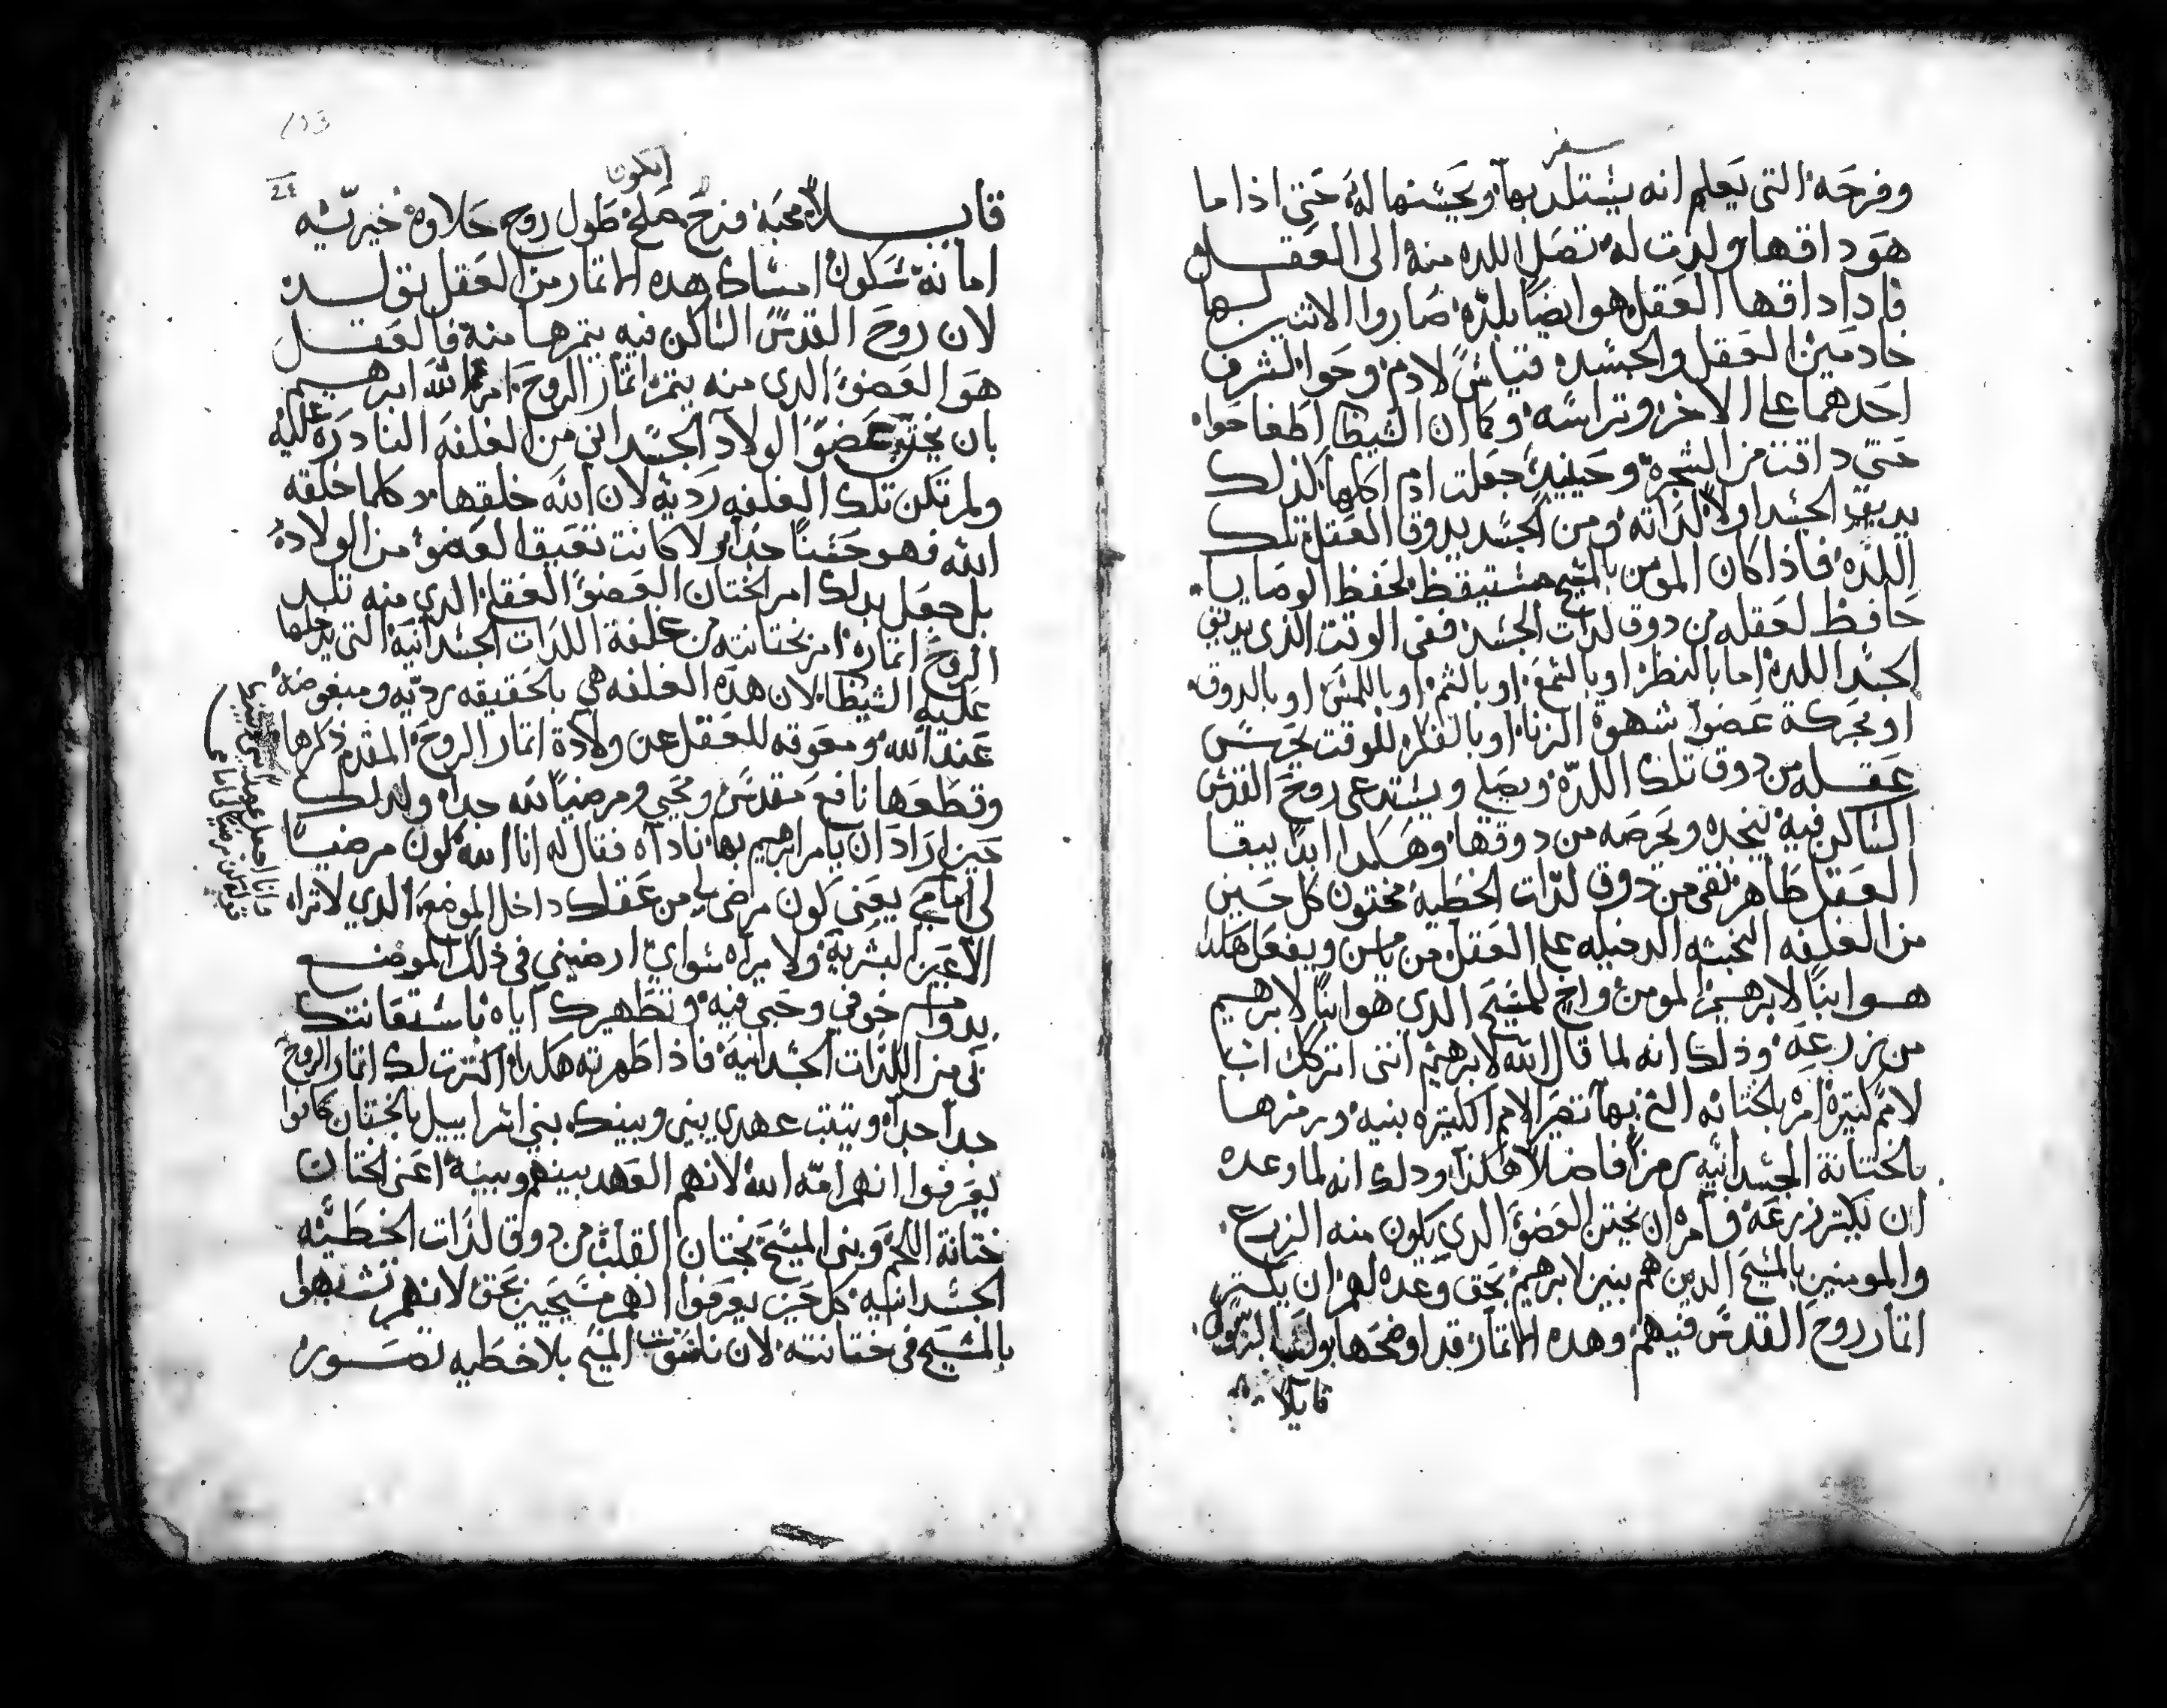 سفر
وفرحه التى يعلم انه يستلد بها ويحسنها له حتى اذا ما
هو داقها ولدت له تصل اللده منه الى العقل
فادا داقها العقل هو ايضا بلده صاروا الاتنين لها
خادمين العقل والجسد قياس لادم وحوا لشرف
احدهما على الاخر وتراسه وكما ان الشيطان اطغا حوا
حتى داقت من الشجره وحينيد جعلت ادم اكلها كذلك
يديق الجسد اولا لذاته ومن الجسد يدوق العقل تلك
اللذه فاذا كان المومن بالمسيح مستيقظ لحفظ الوصايا
حافظ لعقله من دوق لدات الجسد ففى الوقت الذى يديق
الجسد اللده اما بالنظر او بالسمع او بالشم او باللمس او بالدوق
او بحركة عضو شهوة الزنا او بالفكر للوقت يحرس
عقله من دوق تلك اللده ويصلى ويستدعى روح القدس
الساكن فيه ينجده ويحرصه من دوقها وهكدا ابدا يبقا
العقل طاهر نقى من دوق لدات الخطيه مختون كل حين
من الغلفه النجسه الدخيله على العقل من ويفعل هكدا
هو ابنا لابرهيم المومن واخ للمسيح الدى هو ابنا لابرهيم
من زرعه وذلك انه لما قال الله لابرهيم اننى اتركك ابا
لامم كتيره امره بالختانه التى بها تصير الامم الكتيره بنيه ورمزها
بالختانة الجسدانيه رمزا فاضلا هكذا ودلك انه لما وعده
ان يكتر زرعه فامره ان يختن العضو الدى يكون منه الزرع
والمومنين بالمسيح الدين هم بنين لابرهيم بحق وعده لهم ان يكتر
اتمار روح القدس فيهم وهده الاتمار قد اوضحها بولس الرسول
قايلا
التكون
24
قايلا محبه فرح صلح طول روح حلاوه خيريه
امانه سكون امساك هده الاتمار من العقل تولد
لان روح القدس الساكن فيه يتمرها منه فالعقل
هو العضو الدى منه يتمر اتمار الروح امر الله ابرهيم
بان يختن عضو الولاد الجسدانى من الغلفه النادره عليه
ولم تكن تلك الغلفه رديه لان الله خلقها وكلما خلقه
الله فهو حسنا جدا ولا كانت تعيق العضو من الولاده
بل جعل بدلك امر الختان العضو العقلى الدى منه تلد
الروح اتماره امر بختانته من غلفة اللدات الجسدانيه التى يدخلها
عليه الشيطان لان هذه الغلفه هى بالحقيقه رديه ومبغوضه
عند الله ومعوقه للعقل عن ولادة اتمار الروح المقدم ذكرها
وقطعها نافع مقدس ومحيى ومرضيا لله جدا ولدلك
حين اراد ان يامر ابرهيم بها ناداه فقال له انا الله كون مرضيا
لى امامى يعنى كون مرضى لى من عقلك داخل الموضع الدى لا تراه
الاعين البشريه ولا يراه سواى ارضينى فى ذلك الموضع
بدوام خوفى وحبى فيه وتطهيرك اياه باستعانتك
بى من اللذات الجسدانيه فاذا طهرته هكدا اكترت لك اتمار الروح
جدا جدا ويتبت عهدى بينى وبينك بنى اسراييل بالختان كانوا
يعرفوا انهم امة الله لانهم العهد بينهم وبينه اعنى الختان
ختانة اللحم وبنى المسيح بختان القلب من دوق لذات الخطيه
الجسدانيه كل حين يعرفوا انهم مسيحيين بحق لانهم تشبهوا
بالمسيح فى ختانته لان ناسوت المسيح بلا خطيه تصور